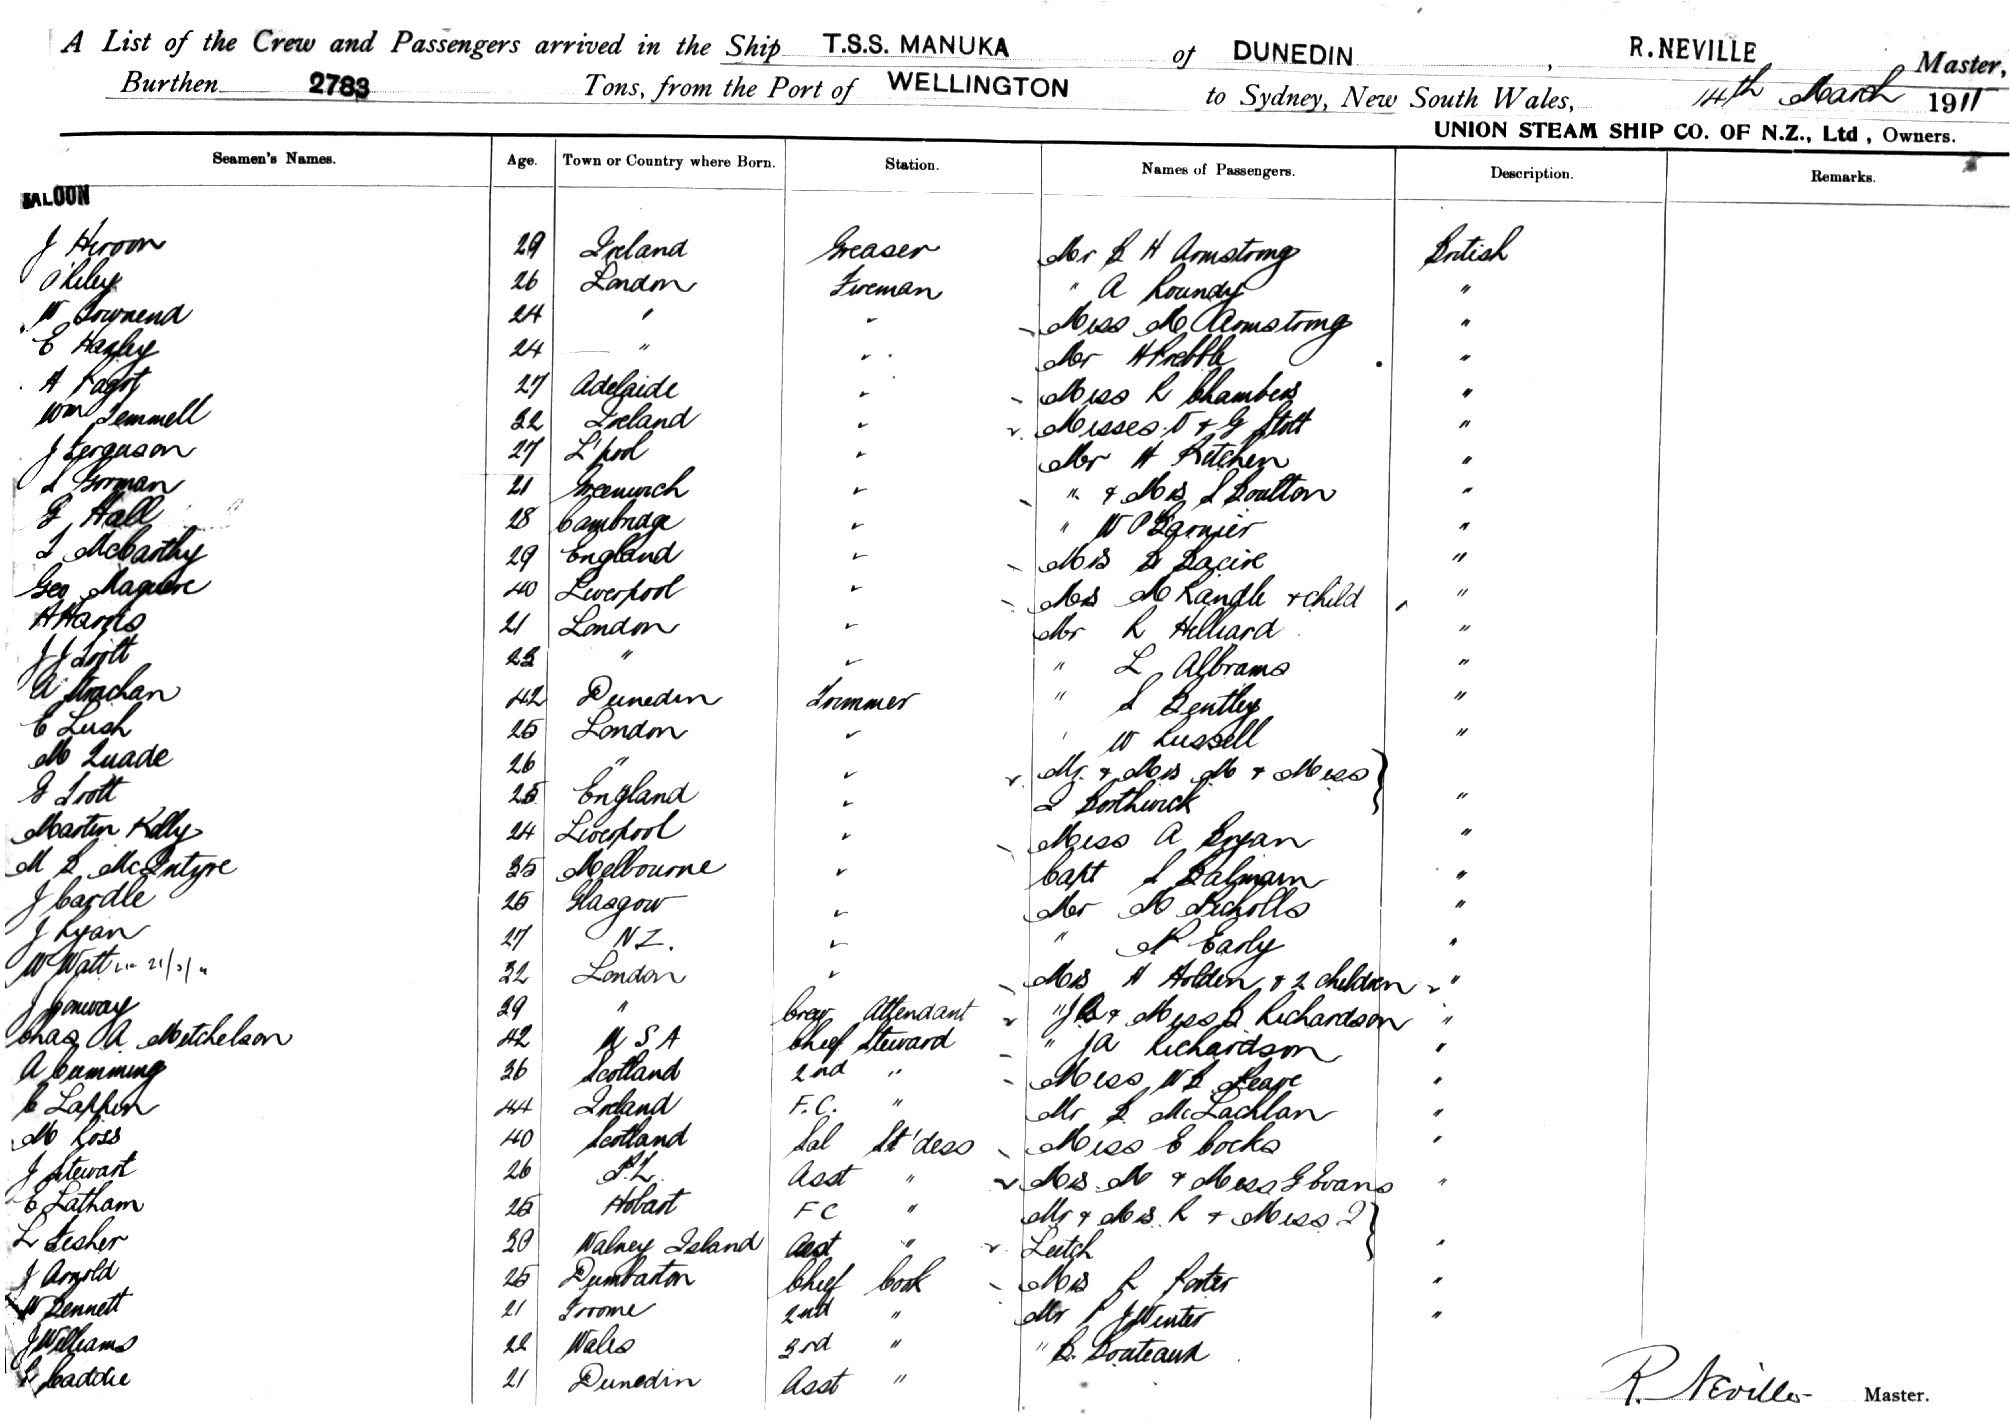 A List of the Crew and Passengers arrived in the Ship T.S.S. MANUKA of DUNEDIN, R.NEVILLE Master,
Burthen 2783 Tons, from the Port of WELLINGTON to Sydney, New South Wales, 14th March 1911
UNION STEAM SHIP CO. OF N.Z., Ltd, Owners.
Seamen's Names. Age. Town or Country where Born. Station. Names of Passengers. Description. Remarks.
SALOON
J Heron 29 Ireland Greaser Mr B H Armstrong British
Riley 26 London Fireman " A Roundy "
W Townend 24 " Miss M Armstrong "
E Hanley 24 " Mr H Prebble "
A Fagot 27 Adelaide Miss R Chambers "
Wm Temmell 32 Ireland Misses & G Stott "
J Ferguson 27 L'pool Mr H Kitchen "
Gorman 21 Greenwich " & Mrs S Boulton "
G Hall 28 Cambridge " W P Garnier "
T McCarthy 29 England Mrs "
Geo Maguire 40 Liverpool Mrs M Randle & child "
A Harris 21 London Mr R Hilliard "
J J Trott 23 " " L Albrams "
A Strachan 42 Dunedin Trimmer " S Bentley "
C Lush 25 London W Russell "
M Quade 26 " Mr & Mrs M & Miss
G Trott 25 England Borthwick "
Martin Kelly 24 Liverpool Miss A Bryan "
M B McIntyre 35 Melbourne Capt S "
J Cardle 25 Glasgow Mr M Nicholls "
J Ryan 27 N Z. " N Early "
W Watt 32 London Mrs H Holden & 2 children "
J Conway 29 " Crew Attendant " & Miss Richardson "
Chas A Mitchelson 42 U S A Chief Steward " J A Richardson "
A Cumming 36 Scotland 2nd " Miss W B "
C Lappin 44 Ireland F.C. " Mr B McLachlan "
M Ross 40 Scotland Sal St'dess Miss E Cocks "
J Stewart 26 N.Z. Asst " Mrs M & Miss G Evans "
C Latham 25 Hobart F C " Mr & Mrs R & Miss J
L Fisher 30 Walney Island Asst " Leitch "
J Arnold 25 Dumbarton Chief Cook Mrs R Porter "
W Bennett 21 Froome 2nd " Mr P J Winter "
J Williams 22 Wales 3rd " " B.
Caddie 21 Dunedin Asst "
R. Neville Master.